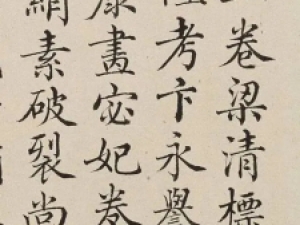 卷梁清標
考卞永譽
畫宓妃卷
絹素破裂尚